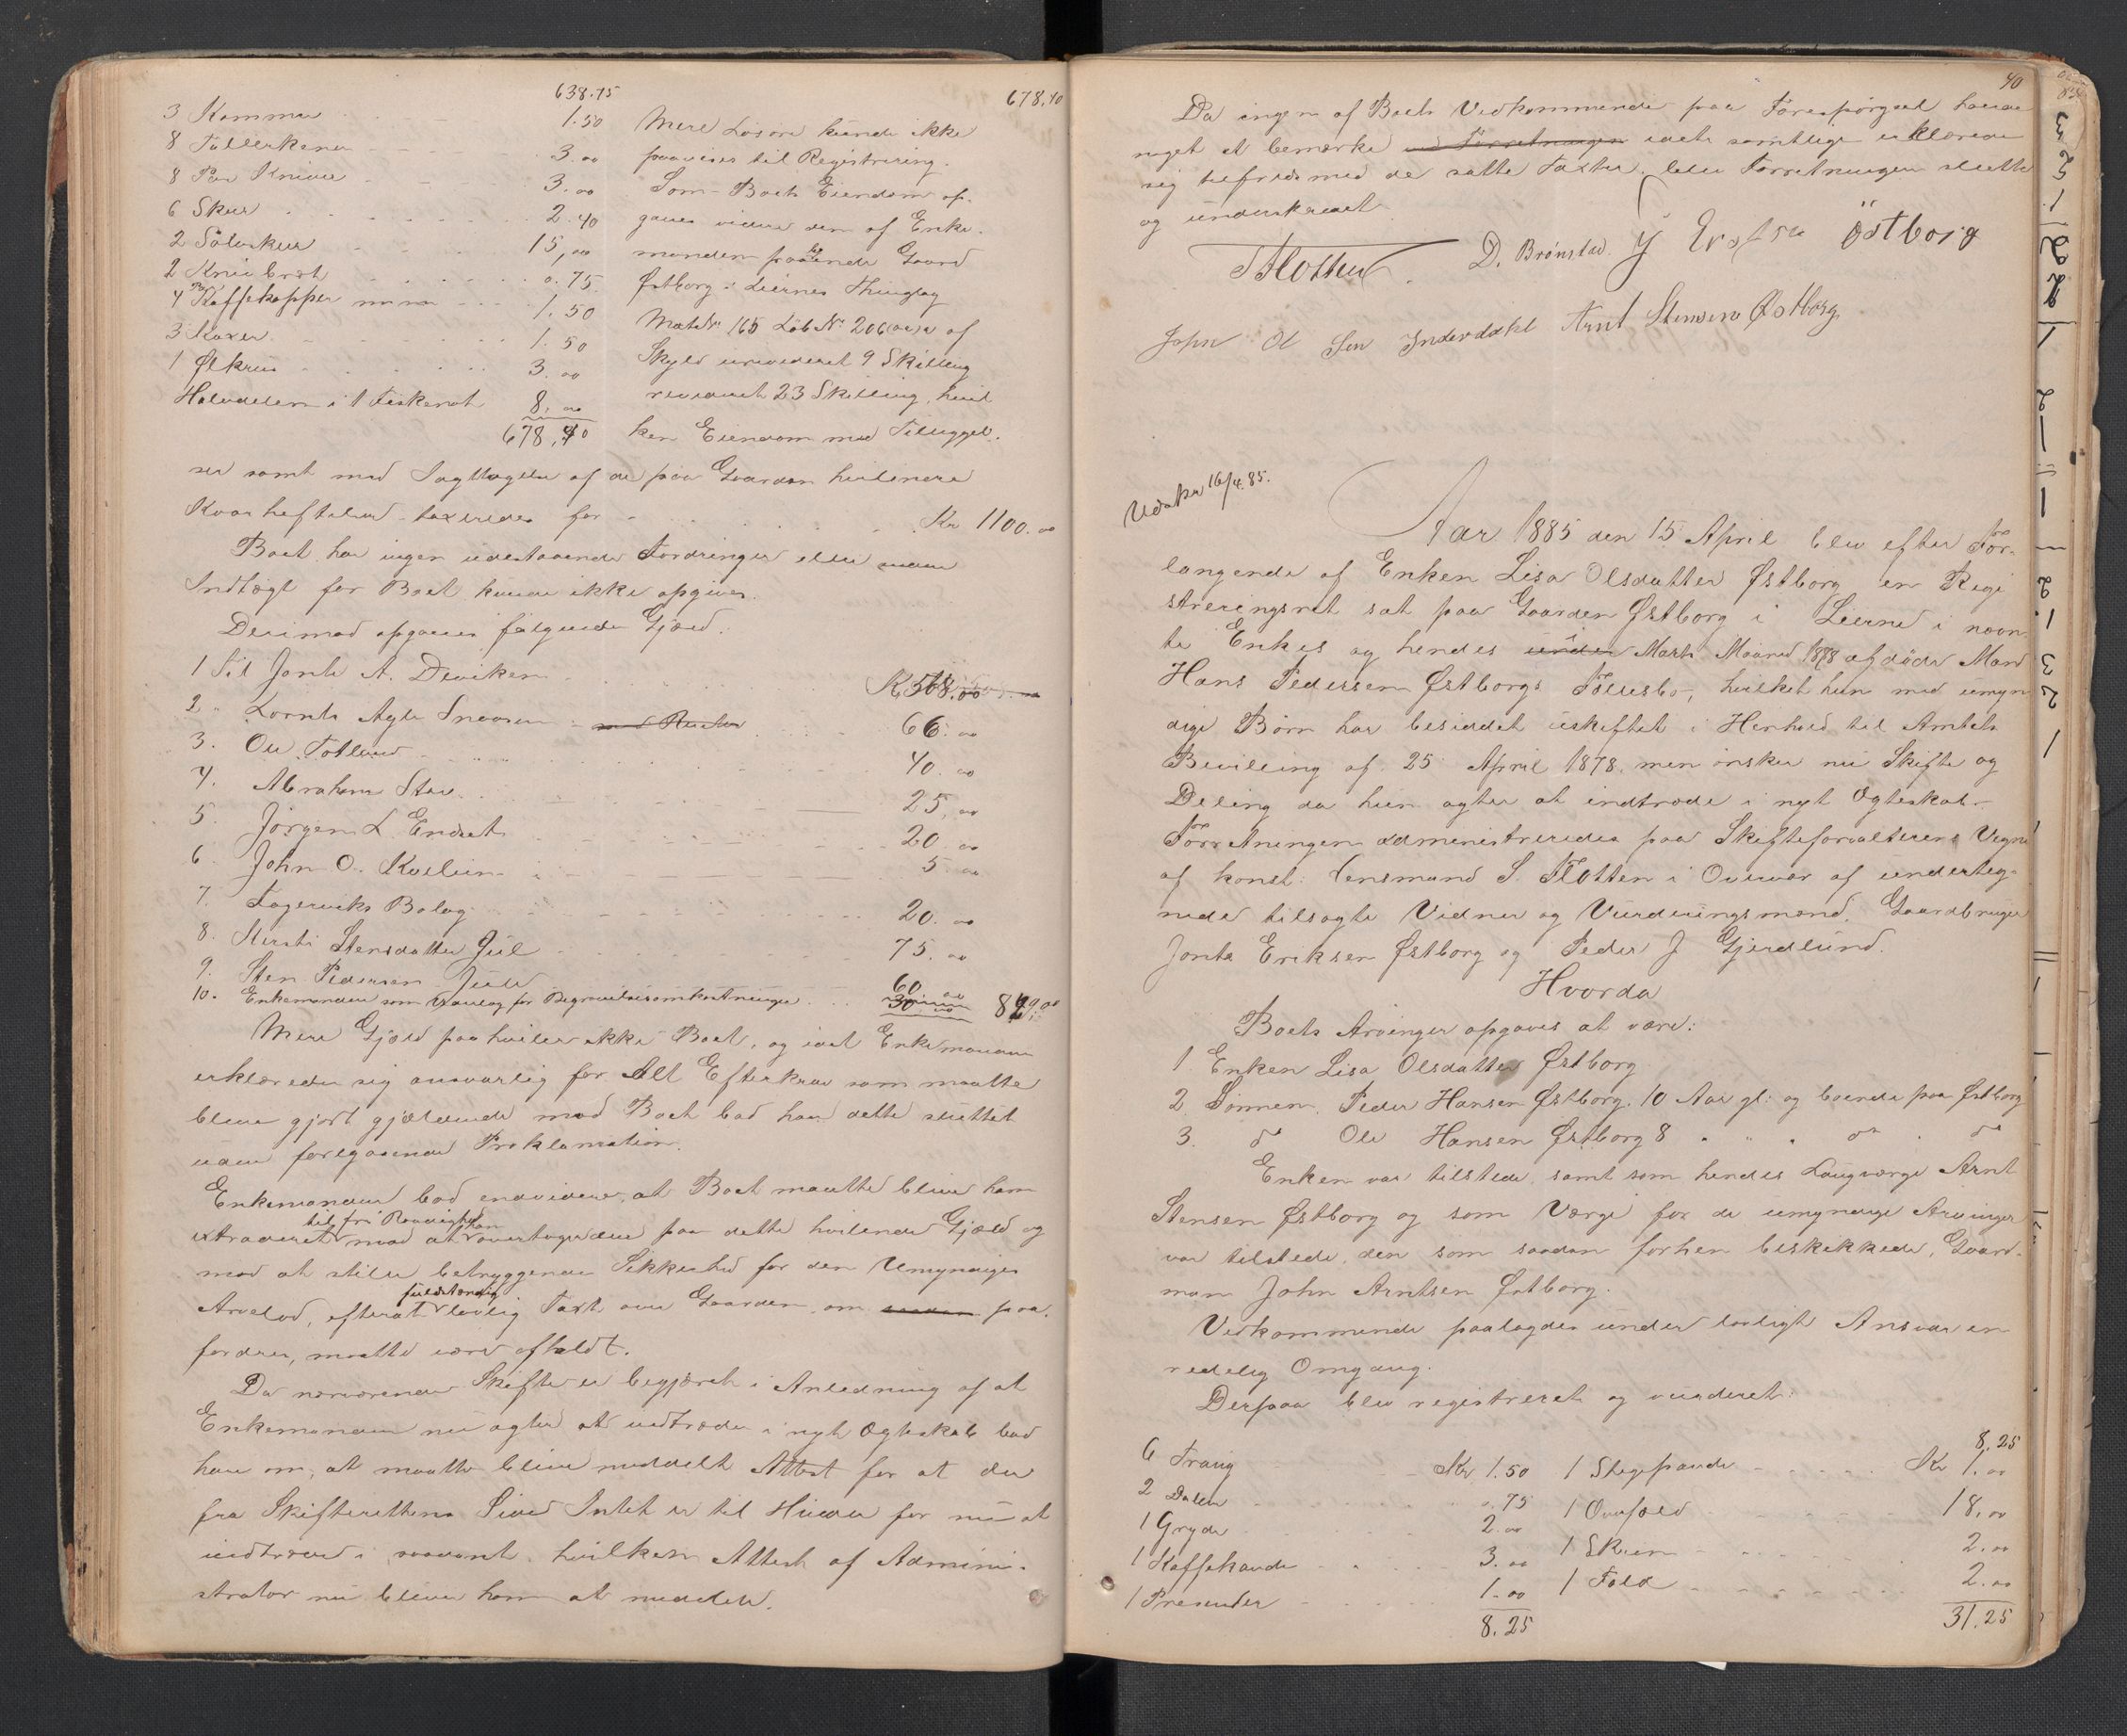 638.75
3 Kommer 1.50
8 Tallerkener 3.00
8 Par Knive 3.00
6 Skeer 2.40
2 Sølvskeer 15,00
2 Knivbræt 0.75
4 Pr Kaffekopper m.m. 1.50
3 Kaxer 1.50
1 Ølkrus 3.00
Halvdelen i 1 Fiskenot 8,00
678,40
678,40
Mere Løsøre kunde ikke
paavises til Registrering.
Som Boets Eiendom op-
gaves videre den af Enke-
manden paaboende Gaard
Østborg i Liernes Thinglag
Mat. Nr 165 Løb Nr 206 af
Skyld urevideret 9 Skilling
revideret 23 Skilling, hvil
ken Eiendom med Tilliggel-
ser samt med Iagttagelse af de paa Gaarden hvilende
Kaarheftelser taxeredes for Kr 1100.00
Boet har ingen udestaaende Fordringer eller anden
Indtægt for Boet kunde ikke opgives.
Derimod opgaves følgende Gjæld:
1 Til Jonts A. Deviken K 508.00
2 " Lornts Agle Snaasen med Renter 66.00
3. Ole Totland 40.00
4. Abraham Stav 25,00
5. Jørgen L. Endset 20.00
6. John O. Kvelien 5.00
7. Fagerviks Bolag 20.00
8. Kirsti Stensdatter Jul 75.00
9. Sten Pedersen Jule 60.00
10. Enkemanden som Udlæg for Begravelsesomkostninger 30.00 849.00
Mere Gjæld paahviler ikke Boet, og idet Enkemanden
erklærede sig ansvarlig for Alt Efterkrav som maatte
blive gjort gjældende mod Boet bad han dette sluttet
uden foregaaende Proklamation.
Enkemanden bad endvidere, at Boet maatte blive ham
til fri Raadighed
extraderet mod at han overtager den paa dette hvilende Gjæld og
mod at stille betryggende Sikkerhed for den Umyndiges
fuldstændig
Arvelod, efterat lovlig Taxt over Gaarden, om saadan paa-
fordres, maatte være afholdt.
Da nærværende Skifte er begjæret i Anledning af at
Enkemanden nu agter at indtræde i nyt Ægteskab bad
han om, at maatte blive meddelt Attest for at der
fra Skifterettens Side Intet er til Hinder for nu at
indtræde i saadant, hvilken Attest af Admini-
strator nu bliver ham at meddele.
40
Da ingen af Boets Vedkommende paa Forespørgsel havde
noget at bemærke ved Forretningen idet samtlige erklærede
sig tilfreds med de satte Taxter, blev Forretningen sluttet
og underskrevet.
S Flotten D. Brønstad. J Eriksen Östborg
John Olsen Inderdahl Arnt Stensen Østborg
Udskr 16/4.85.
Aar 1885 den 15 April blev efter For-
langende af Enken Lisa Olsdatter Østborg en Regi
streringsret sat paa Gaarden Østborg i Lierne i nævn-
te Enkes og hendes under i Marts Maaned 1878 afdøde Mand
Hans Pedersen Østborgs Fællesbo, hvilket hun med umyn
dige Børn har besiddet uskiftet i Henhold til Amtets
Bevilling af 25 April 1878, men ønsker nu Skifte og
Deling da hun agter at indtræde i nyt Ægteskab.
Forretningen administreredes paa Skifteforvalterens Vegne
af konst: Lensmand S. Flotten i Overvær af underteg-
nede tilsagte Vidner og Vurderingsmænd, Gaardbruger
Jonts Eriksen Østborg og Peder J Gjerdlund.
Hvorda
Boets Arvinger opgaves at være:
1. Enken Lisa Olsdatter Østborg
2. Sønnen, Peder Hansen Østborg. 10 Aar gl: og boende paa Østborg
3. do Ole Hansen Østborg 8 " " " do " do
Enken var tilstede, samt som hendes Laugværge Arnt
Stensen Østborg og som Værge for de umyndige Arvinger
var tilstede, den som saadan forhen beskikkede, Gaard-
man John Arntsen Østborg.
Vedkommende paalagdes under lovligt Ansvar en
redelig Omgang.
Derpaa blev registreret og vurderet:
6 Traug Kr 1.50
2 Daller 0.75
1 Gryde 2.00
1 Kaffekande 3.00
1 Presender 1.00
8.25
8.25
1 Stegepande Kr 1.00
1 Ovnfæld 18,00
1 Skrin 2.00
1 Fæld 2.00
31.25